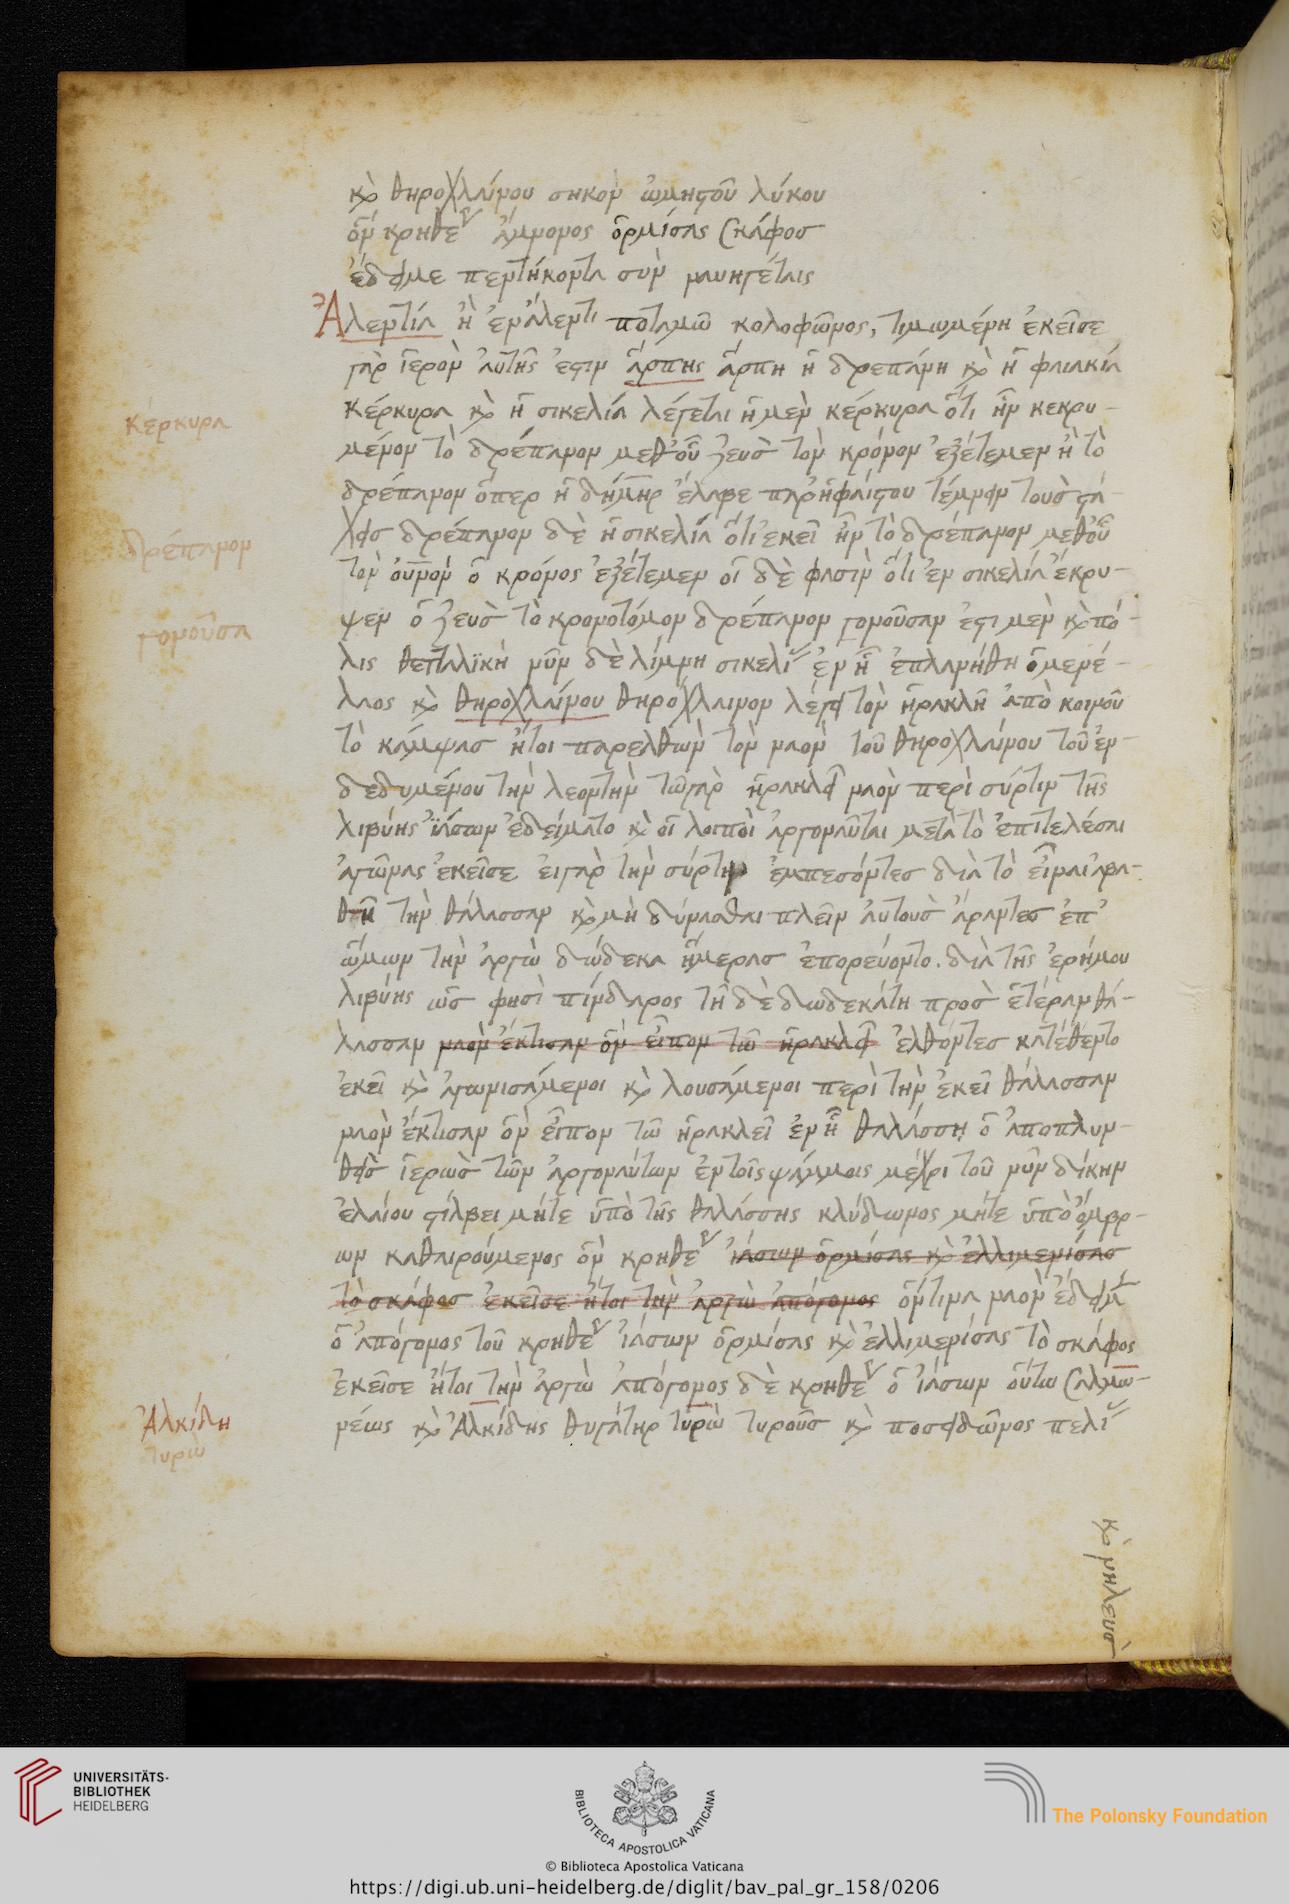 καὶ θηροχλαίνου σηκὸν ὠμηστοῦ λύκου
ὃν κρηθέως ἄμναμος ὁρμίσας σκάφος
ἔδειμε πεντήκοντα σὺν ναυηγέταις
Ἀλεντία ἡ ἐν ἄλεντι ποταμῶ κολοφῶνος, τιμωμένη ἐκεῖσε
γὰρ ἱερὸν αὐτῆς ἐστιν ἅρπης ἅρπη ἡ δρεπάνη καὶ ἡ φαιακία
κέρκυρα καὶ ἡ σικελία λέγεται ἡ μὲν κέρκυρα ὅτι ἦν κεκρυ-
μένον τὸ δρέπανον μεθ' οὗ ζευσ τὸν κρόνον ἐξέτεμεν ἢ τὸ
δρέπανον ὅπερ ἡ δημήτηρ ἔλαβε παρ' ἡφαίστου τέμνειν τοὺς στά-
χεις δρέπανον δὲ ἡ σικελία ὅτι ἐκεῖ ἦν τὸ δρέπανον μεθ' οὗ
τὸν οὐρανὸν ὁ κρόνος ἐξέτεμεν οἱ δὲ φασὶν ὅτι ἐν σικελία ἔκρυ-
ψεν ὁ ζευσ τὸ κρονοτόμον δρέπανον γονοῦσαν ἔστι μὲν καὶ πό-
λις θετταλϊκὴ νῦν δὲ λίμνη σικελίας ἐν ἧ ἐπλανήθη ὁ μενέ-
λαος καὶ θηροχλαίνου θηρόχλαινον λέγει τὸν ἡρακλῆ ἀπὸ κοινοῦ
τὸ κάμψας ἤτοι παρελθὼν τὸν ναὸν τοῦ θηροχλαίνου τοῦ ἐν-
δεδυμένου τὴν λεοντὴν τῶ γὰρ ἡρακλεῖ ναὸν περὶ σύρτιν τῆς
λιβύης ἰάσων ἐδείματο καὶ οἱ λοιποὶ ἀργοναῦται μετὰ τὸ ἐπιτελέσαι
ἀγῶνας ἐκεῖσε εἰ γὰρ τὴν σύρτην ἐμπεσόντες διὰ τὸ εἶναι ἀβα-
θῆ τὴν θάλασσαν καὶ μὴ δύνασθαι πλεῖν αὐτοὺς ἄραντες ἐπ'
ὤμων τὴν ἀργὼ δώδεκα ἡμέρας ἐπορεύοντο. διὰ τῆς ἐρήμου
λιβύης ὥς φησὶ πίνδαρος τῆ δὲ δωδεκάτη πρὸς ἑτέραν θά-
λασσαν ναὸν ἔκτισαν ὃν εἶπον τῶ ἡρακλεῖ ἐλθόντες κατέθεντο
ἐκεῖ καὶ ἀγωνισάμενοι καὶ λουσάμενοι περὶ τὴν ἐκεῖ θάλασσαν
ναὸν ἔκτισαν ὃν εἶπον τῶ ἡρακλεῖ ἐν ἧ θαλάσση ὁ ἀποπλυν-
θεὶς ἱερὼς τῶν ἀργοναύτων ἐν τοῖς ψάμμοις μέχρι τοῦ νῦν δίκην
ἐλαίου στίλβει μήτε ὑπὸ τῆς θαλάσσης κλύδωνος μήτε ὑπὸ ὄμβρ-
ων καθαιρούμενος ὃν κρηθέως ἰάσων ὁρμίσας καὶ ἐλλιμενίσας
τὸ σκάφος ἐκεῖσε ἤτοι τὴν ἀργὼ ἀπόγονος ὅντινα ναὸν ἔδειμε
ὁ ἀπόγονος τοῦ κρηθέως ἰάσων ὁρμίσας καὶ ἐλλιμενίσας τὸ σκάφος
ἐκεῖσε ἤτοι τὴν ἀργὼ ἀπόγονος δὲ κρηθέως ὁ ἰάσων οὕτω σαλμω-
νέως καὶ Ἀλκίδης θυγάτηρ τυρὼ τυροῦς καὶ ποσειδῶνος πελίας
καὶ νηλευσ
κέρκυρα
δρέπανον
γονοῦσα
Ἀλκίδη
τυρω
UNIVERSITÄTS-
BIBLIOTHEK
HEIDELBERG
BIBLIOTECA APOSTOLICA VATICANA
The Polonsky Foundation
© Biblioteca Apostolica Vaticana
https://digi.ub.uni-heidelberg.de/diglit/bav_pal_gr_158/0206